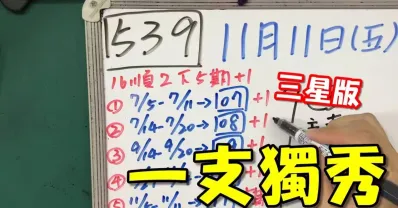 539 11月11日(五)
16順2下5期+1
三星版
① 7/5-7/11→07 +1
② 7/14-7/20→08 +1
③ 9/14-9/20→
一支獨秀
⑤ 11/5-11/11